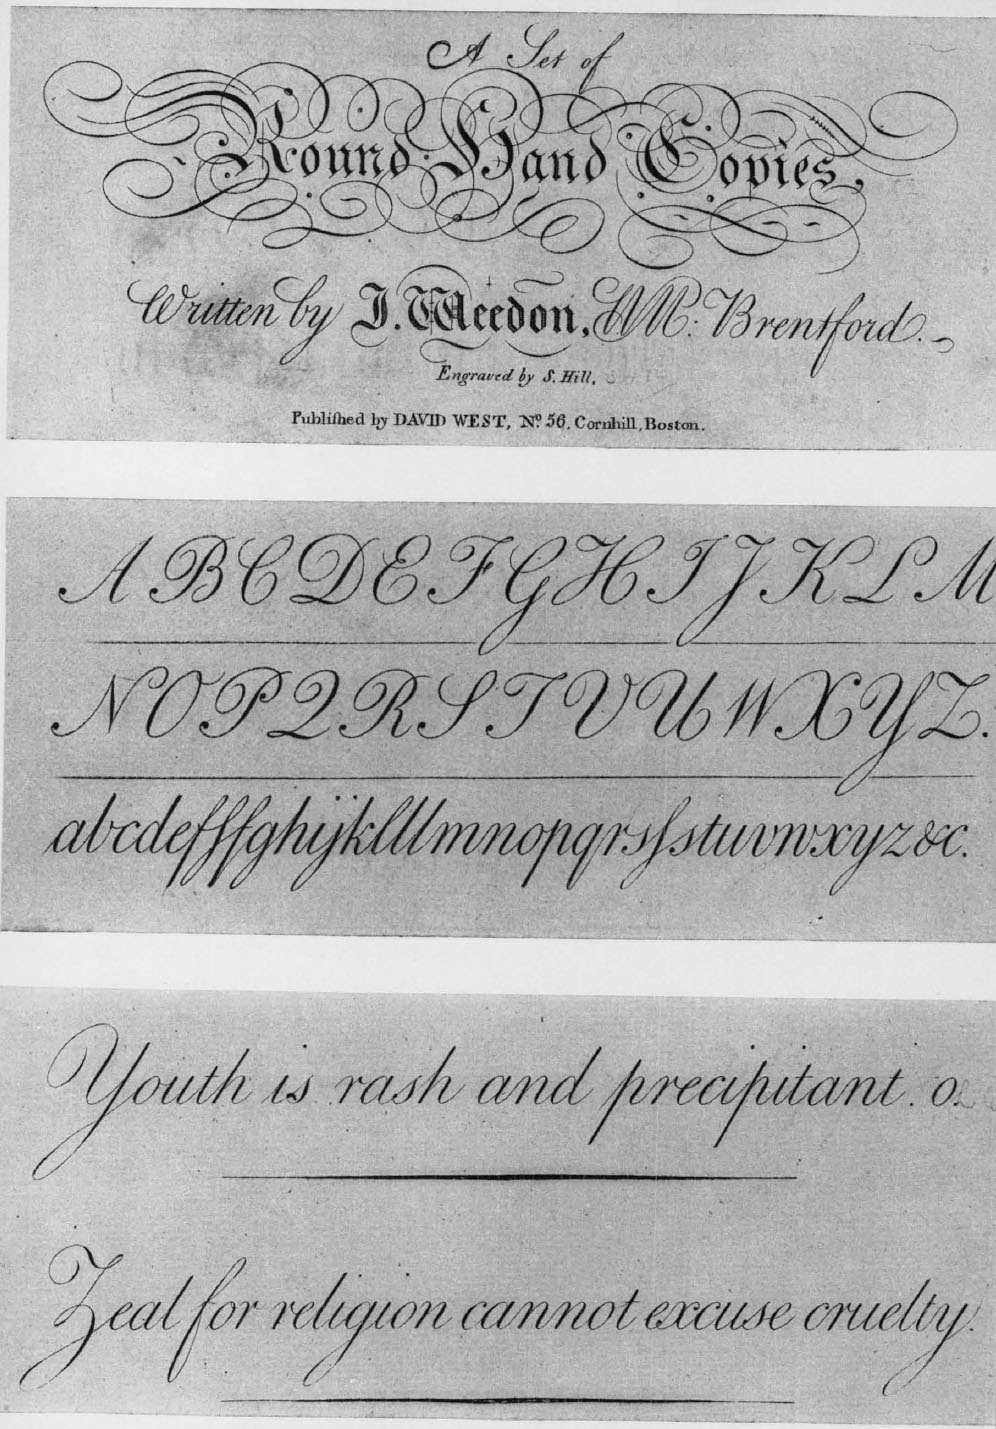 A Set of
Round Hand Copies,
Written by J. Weedon, WM: Brentford.
Engraved by S. Hill.
Publiſhed by DAVID WEST, Nº. 56. Cornhill, Boston.
A B C D E F G H I J K L M
N O P Q R S T V U W X Y Z.
abcdefffſghijklllmnopqrsſstuvwxyz&c.
Youth is rash and precipitant. o.
Zeal for religion cannot excuse cruelty.